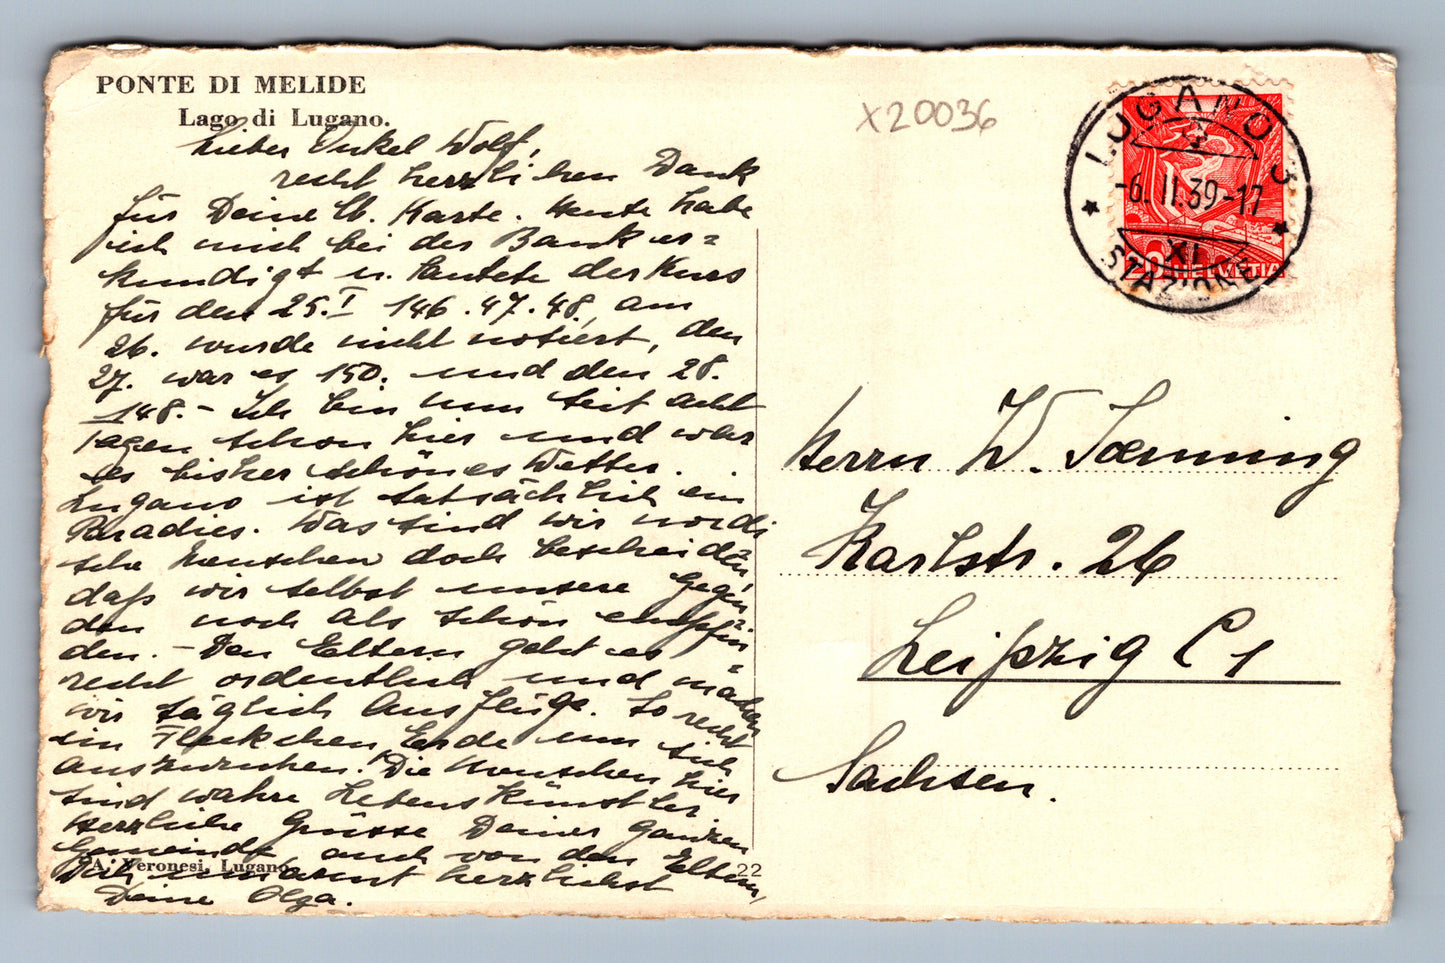 PONTE DI MELIDE
Lago di Lugano.
Lieber Onkel Wolf,
recht herzlichen Dank
für Deine lb. Karte. Heute habe
ich mich bei der Bank er=
kundigt u. lautete der Kurs
für den 25. I 146.47.48, am
26. wurde nicht notiert, den
27. war es 150. und den 28.
148.- Ich bin nun seit acht
Tagen schon hier und war
es bisher schönes Wetter.
Lugano ist tatsächlich ein
Paradies. Was sind wir nordi
sche Menschen doch bescheiden,
daß wir selbst unsere Gegen=
den noch als schön empfin=
den. - Den Eltern geht es
recht ordentlich und machen
wir täglich Ausflüge. So recht
ein Fleckchen Erde um sich
auszuruhen. Die Menschen hier
sind wahre Lebenskünstler
Herzliche Grüsse Deiner ganzen
Gemeinde auch von den Eltern,
Dich umarmt herzlichst
Deine Olga.
A. Veronesi, Lugano.
22
X20036
LUGANO 3
-6. II. 39-17
XI
STAZIONE
20 HELVETIA
Herrn W. Soenning
Karlstr. 26
Leipzig C 1
Sachsen.